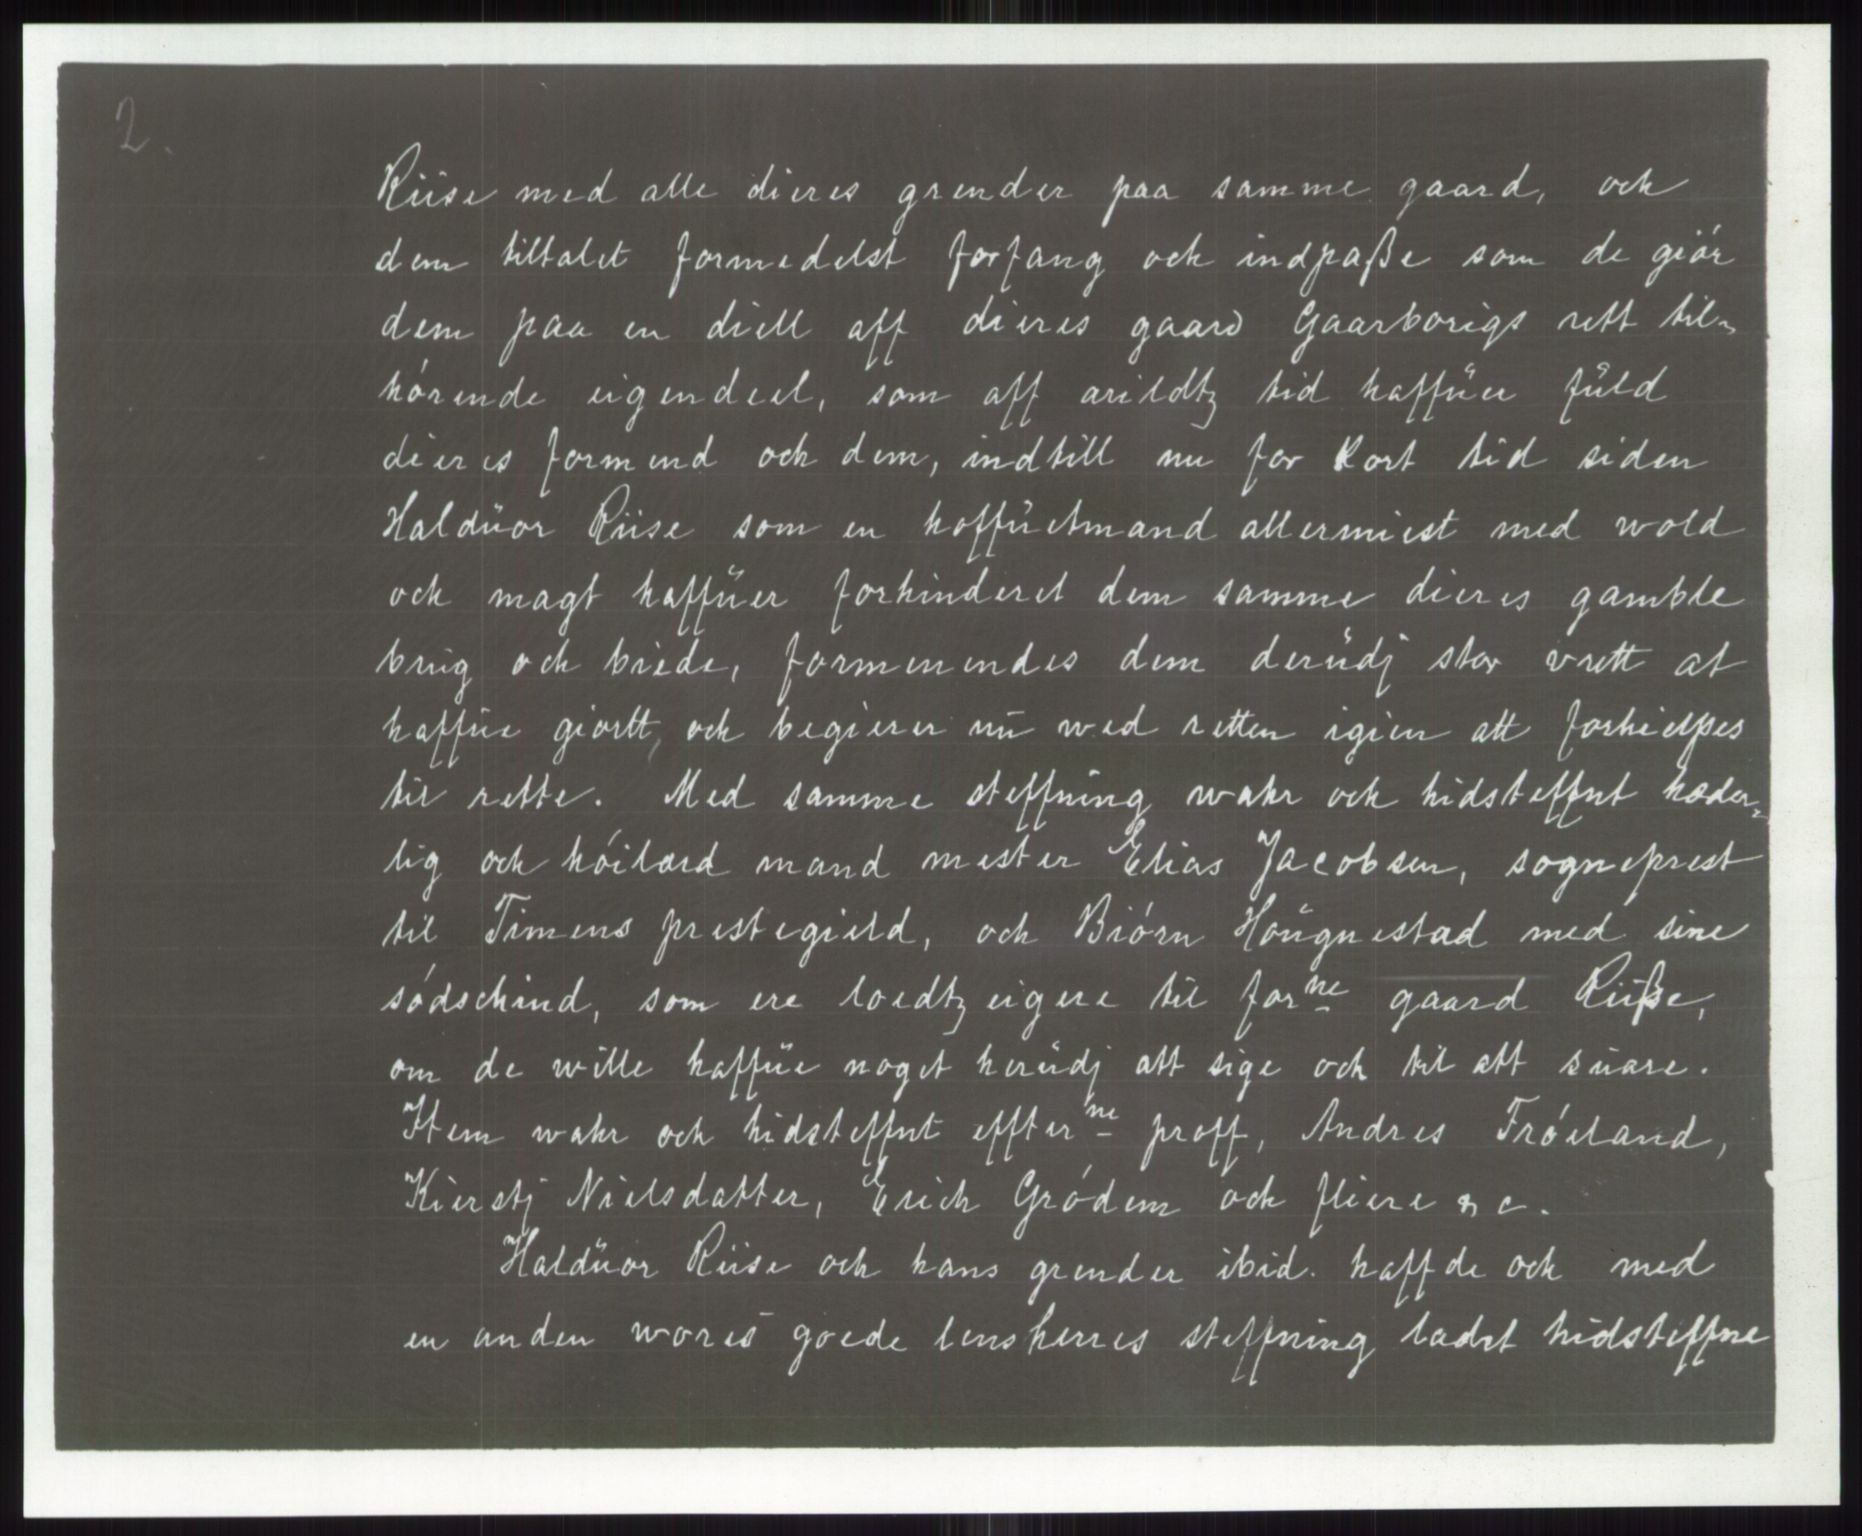 2.
Riise med alle dieres grender paa samme gaard, och
dem tiltalet formedelst forfang och indpaße som de giór
dem paa en diell aff dieres gaard Gaarborigs rett til-
hórende eigendeel, som aff arildtz tid haffüer füld
dieres formend och dem, indtill nu for kort tid siden
Haldüor Riise som en hoffüetmand allermiest med wold
och magt haffüer forhinderet dem samme dieres gamble
brug och biede, formenendes dem derüdj stor vrett at
haffüe giortt, och begierer nü wed retten igien att forhielpes
til rette. Med samme steffning wahr och hidsteffnt hæder-
lig och hóilærd mand mester Elias Jacobsen, sogneprest
til Timens prestegield, och Biórn Hóügnestad med sine
södschind, som ere loedtzeigere til forne gaard Riiße,
om de wille haffüe noget herüdj att sige och til att süare.
Item wahr och hidsteffnt effterne proff, Andres Tróeland,
Kierstj Nielsdatter, Erich Gródem och fliere &c.
Haldüor Riise och hans grender ibid. haffde och med
en anden wores goede lensherres steffning ladet hidsteffne